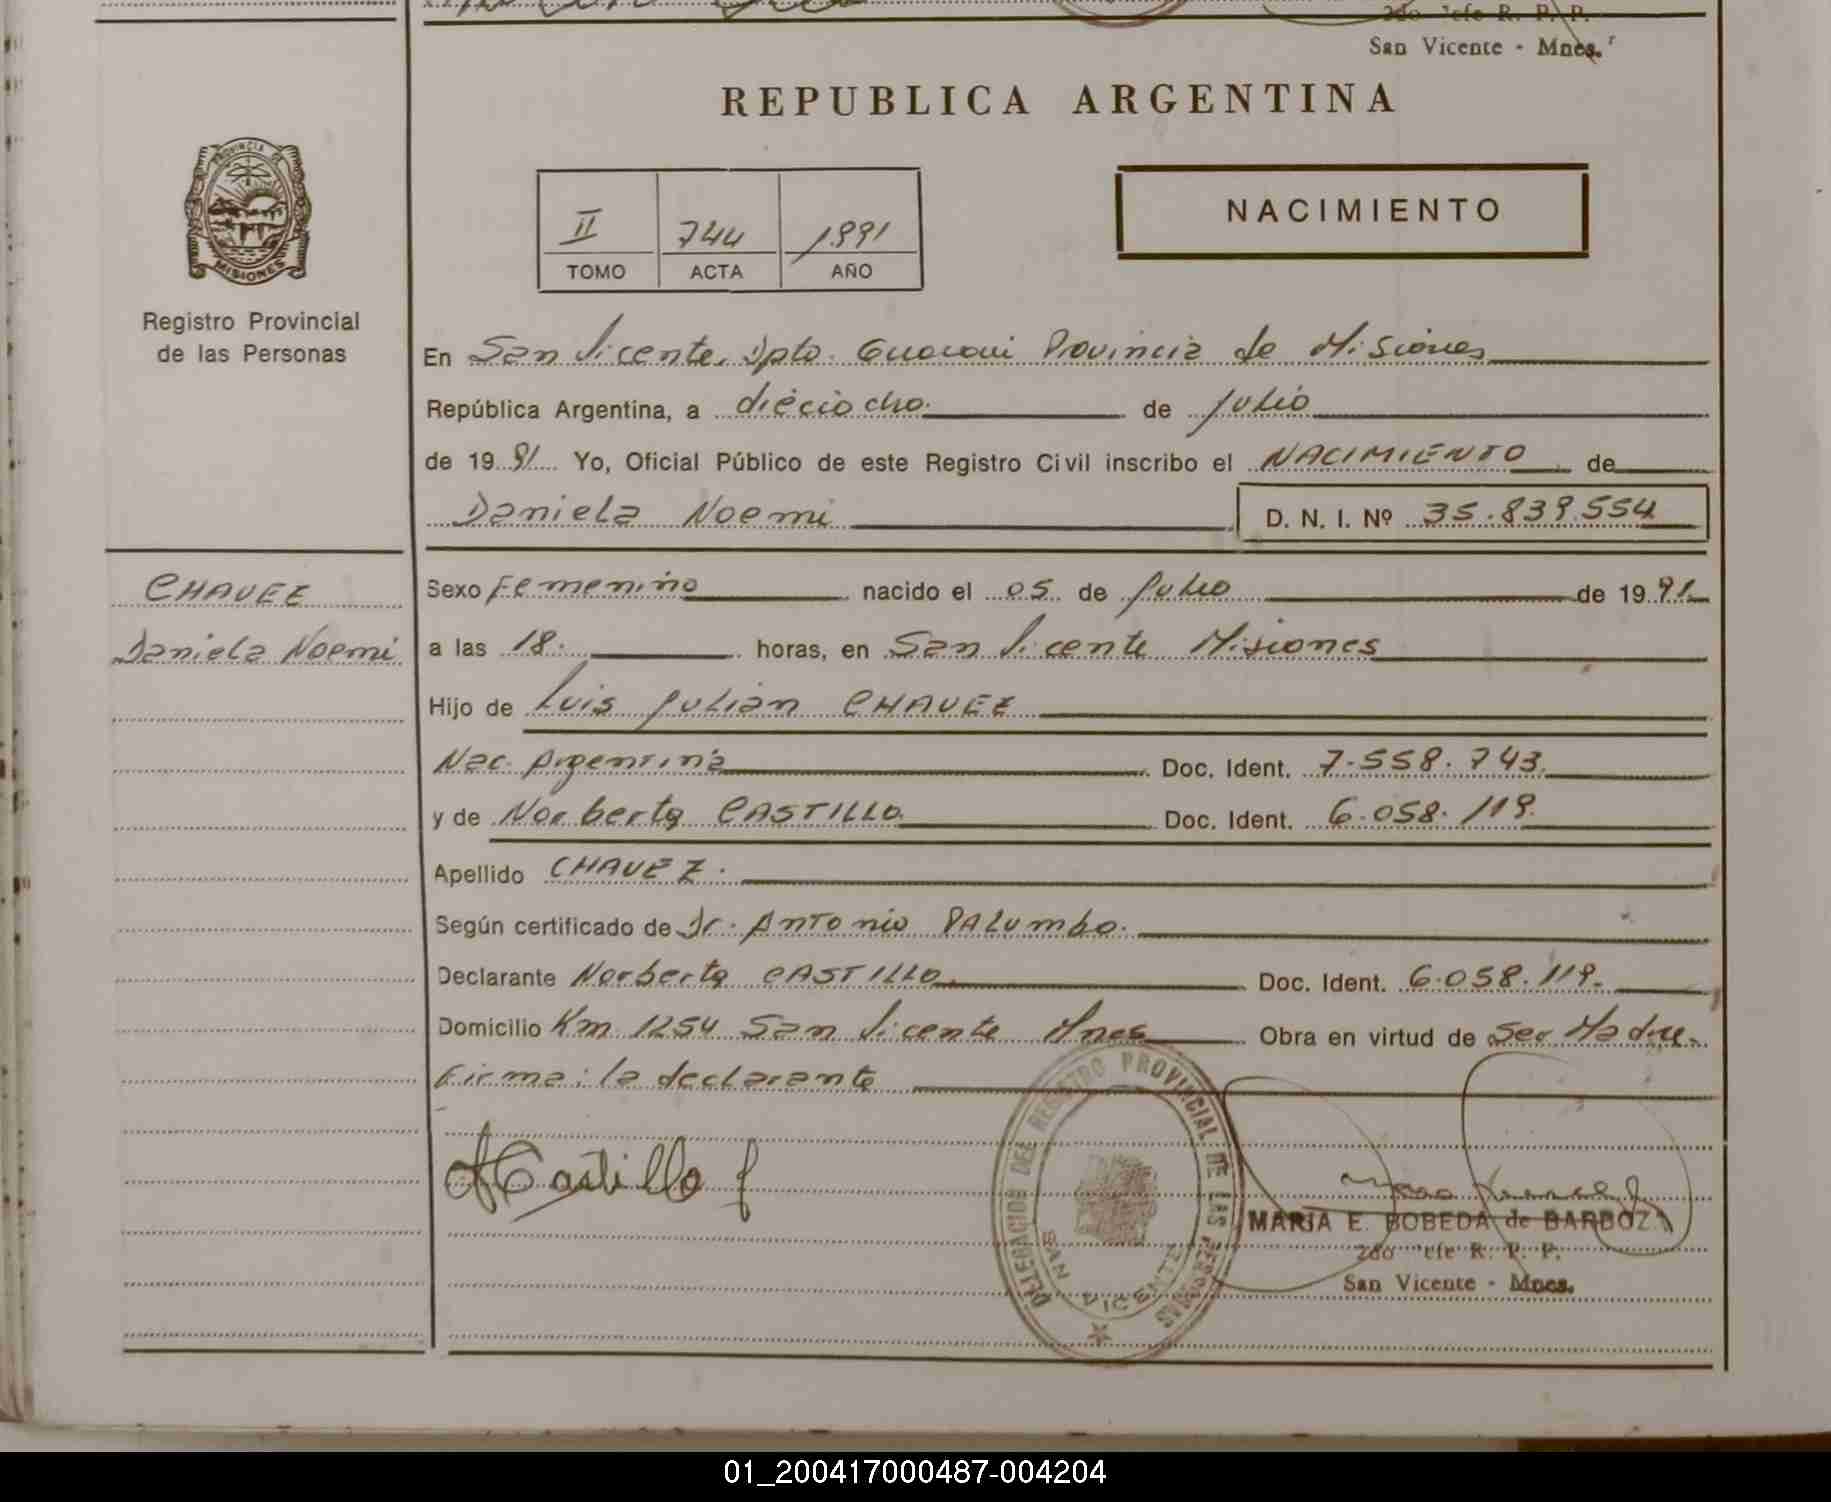 2do Jefe R. P. P.
San Vicente - Mnes.
REPUBLICA ARGENTINA
PROVINCIA DE
MISIONES
Registro Provincial
de las Personas
II 744 1991
TOMO ACTA AÑO
NACIMIENTO
En San Vicente, Dpto. Guarani Provincia de Misiones
República Argentina, a dieciocho. de Julio
de 1991 Yo, Oficial Público de este Registro Civil inscribo el NACIMIENTO de
Daniela Noemi D. N. I. Nº 35.839.554
CHAVEZ
Daniela Noemi
Sexo Femenino nacido el 05 de Julio de 1991.
a las 18. horas, en San Vicente Misiones
Hijo de Luis Julian CHAVEZ
Nac. Argentina Doc. Ident. 7.558.743.
y de Norberta CASTILLO Doc. Ident. 6.058.119.
Apellido CHAVEZ.
Según certificado de Dr. Antonio PALUMBO.
Declarante Norberta CASTILLO Doc. Ident. 6.058.119.
Domicilio Km. 1254 San Vicente Mnes Obra en virtud de Ser Madre.
Firma: la declarante
Castillo
DELEGACION DEL REGISTRO PROVINCIAL DE LAS PERSONAS
SAN VICENTE
MARIA E. BOBEDA de BARBOZA
2do Jefe R. P. P.
San Vicente - Mnes.
01_200417000487-004204